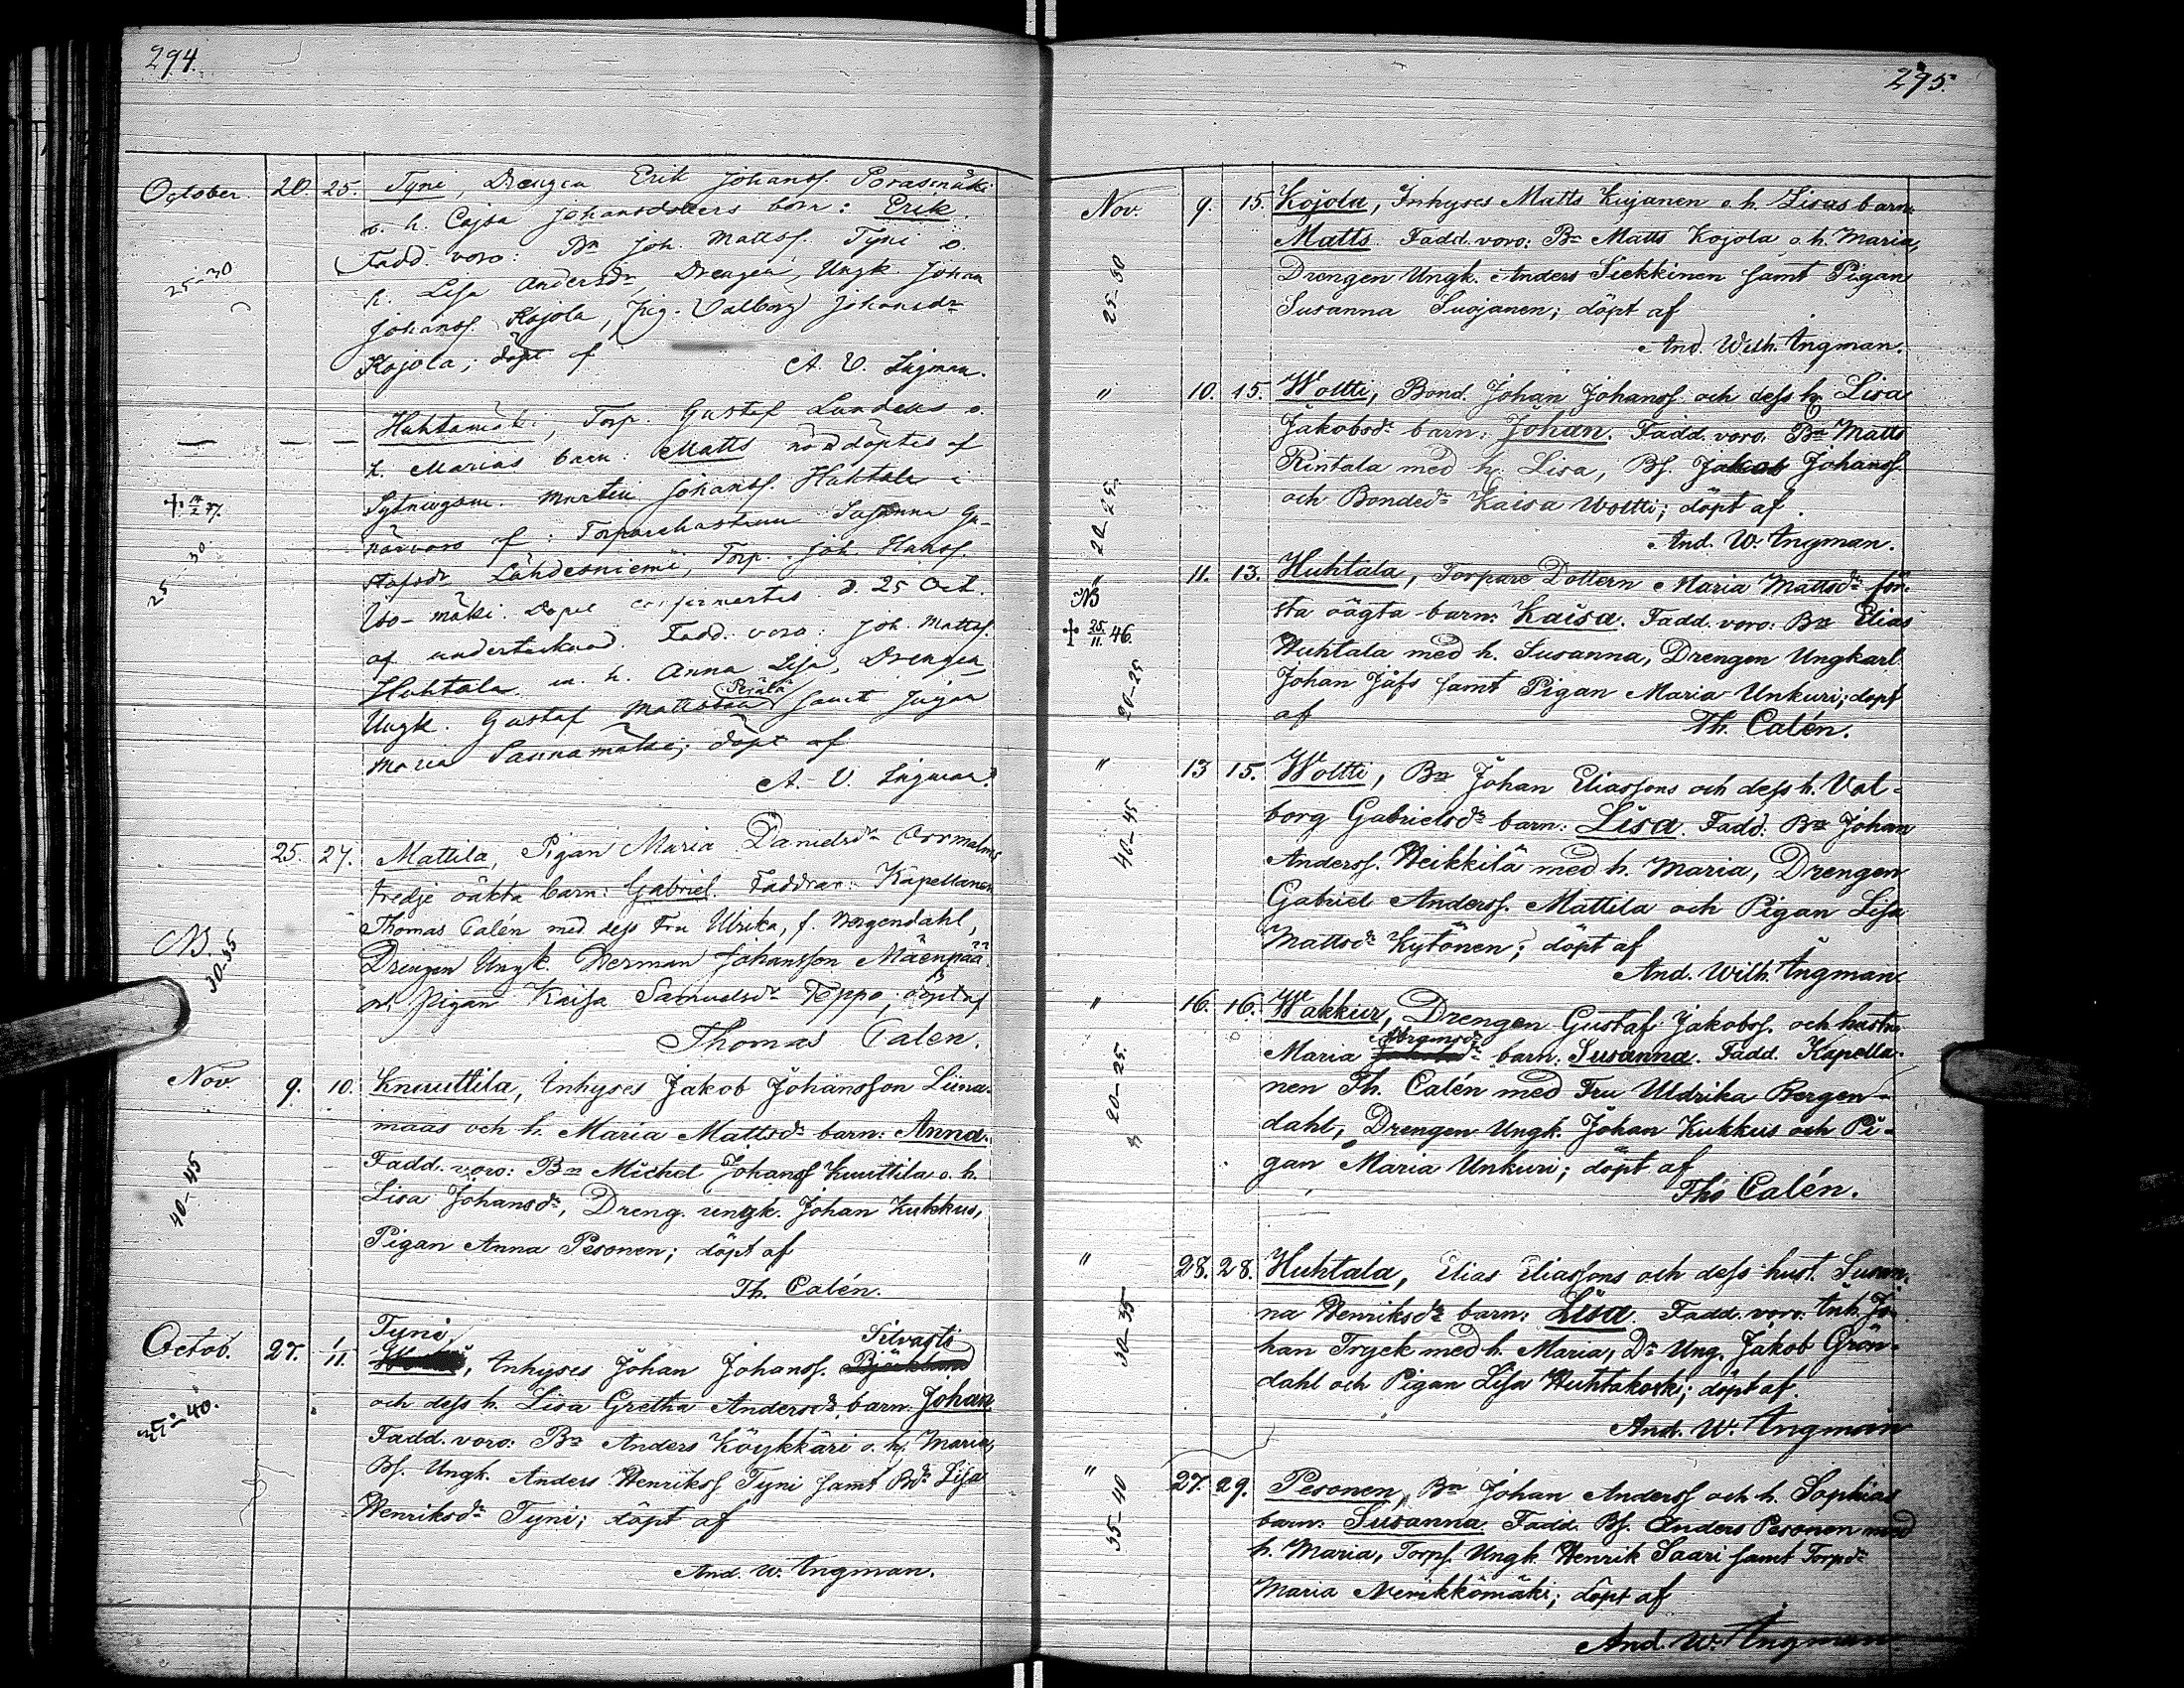 294.
October. 20. 25. Tyni, Drengen Erik Johanss. Porasmäki
o. h. Cajsa Johansdotters barn: Erik.
Fadd. voro: Bn Joh. Mattss. Tyni o.
25-30
h. Lisa Andersdr, Drengen, Ungk. Johan
Johanss. Kojola, Pig. Valborg Johansdr
Kojola; döpt af
A. V. Ingman.
— — — Huhtamäki, Torp. Gustaf Landens o.
h. Marias barn: Matts nöddöptes af
Sytningsm. Martin Johanss. Huhtala i
närvaro af: Torparehustrun Susanna Gu-
stafsdr Lähdesniemi, Torp. Joh. Hanss.
25-30
Iso-mäki. Dopet confirmertes d. 25 Oct.
af undertecknad. Fadd. voro: Joh. Mattss.
Huhtala m. h. Anna Lisa, Drengen
Perälä
Ungk. Gustaf Mattsson samt pigan
Maria Sannamäki; döpt af
A. V. Ingman.
25. 27. Mattila, Pigan Maria Danielsdr Orrmalms
tredje oäkta barn: Gabriel. Faddrar: Kapellanen
Thomas Calén med dess Fru Ulrika, f. Bergendahl,
NB. 30-35
Drengen Ungk. Herman Johansson Mäenpää
o. Pigan Kaisa Samuelsdr Teppo, döpt af
Thomas Calen.
Nov. 9. 10. Knuuttila, Inhyses Jakob Johansson Liina-
maas och h. Maria Mattsdr barn: Anna.
Fadd. voro: Bn Michel Johanss Knuttila o. h.
40-45
Lisa Johansdr, Dreng. ungk. Johan Kukkus,
Pigan Anna Pesonen; döpt af
Th. Calén.
Tyni Silvasti
Octob. 27. 1/11 Inhyses Johan Johanss. Björklund
och dess h. Lisa Gretha Andersdr barn Johan
35-40.
Fadd. voro: Bn Anders Köykkäri o. h. Maria,
Bs. Ungk. Anders Henrikss Tyni samt Bdr Lisa
Henriksdr Tyni; döpt af
And. W. Ingman.
295.
Nov. 9. 15. Kojola, Inhyses Matts Kujanen o. h. Lisas barn
Matts. Fadd. voro: Bn Matts Kojola o. h. Maria,
25-30
Drengen Ungk. Anders Siekkinen samt Pigan
Susanna Suojanen; döpt af
And. Wilh. Ingman.
" 10. 15. Woltti, Bond. Johan Johanss. och dess h. Lisa
Jakobsdr barn: Johan. Fadd. voro. Bn Matts
Rintala med h. Lisa, Bs. Jakob Johanss.
20-25.
och Bondedr Kaisa Woltti; döpt af.
And. W. Ingman.
" 11. 13. Huhtala, Torpare Dottern Maria Mattsdr för-
NB
sta oägta barn: Kaisa. Fadd. voro: Bn Elias
+ 25/11 46.
Huhtala med h. Susanna, Drengen Ungkarl
20-25
Johan Jåfs samt Pigan Maria Unkuri; döpt
af
Th. Calén.
" 13 15. Woltti, Bn Johan Eliassons och dess h. Val-
borg Gabrielsdr barn: Lisa. Fadd. Bn Johan
40-45
Anderss. Heikkilä med h. Maria, Drengen
Gabriel Anderss. Mattila och Pigan Lisa
Mattsdr Kytönen; döpt af
And. Wilh. Ingman.
" 16. 16. Wakkur, Drengen Gustaf Jakobss. och hustru
Abramsdr
Maria barn. Susanna. Fadd. Kapella-
20-25.
nen Th. Calén med Fru Uldrika Bergen-
dahl, Drengen Ungk. Johan Kukkus och Pi-
gan Maria Unkuri; döpt af
Ths Calén.
" 28. 28. Huhtala, Elias Eliassons och dess hust. Susan-
na Henriksdr barn: Lisa. Fadd. voro: Inh. Jo-
30-35
han Tryck med h. Maria, Dr Ung. Jakob Grön-
dahl och Pigan Lisa Huhtakoski; döpt af.
And. W. Ingman
" 27. 29. Pesonen, Bn Johan Anderss och h. Sophias
barn: Susanna. Fadd. Bs. Anders Pesonen med
35-40
h. Maria, Torps. Ungk. Henrik Saari samt Torpdr
Maria Nerikkömäki; döpt af
And. W. Ingman